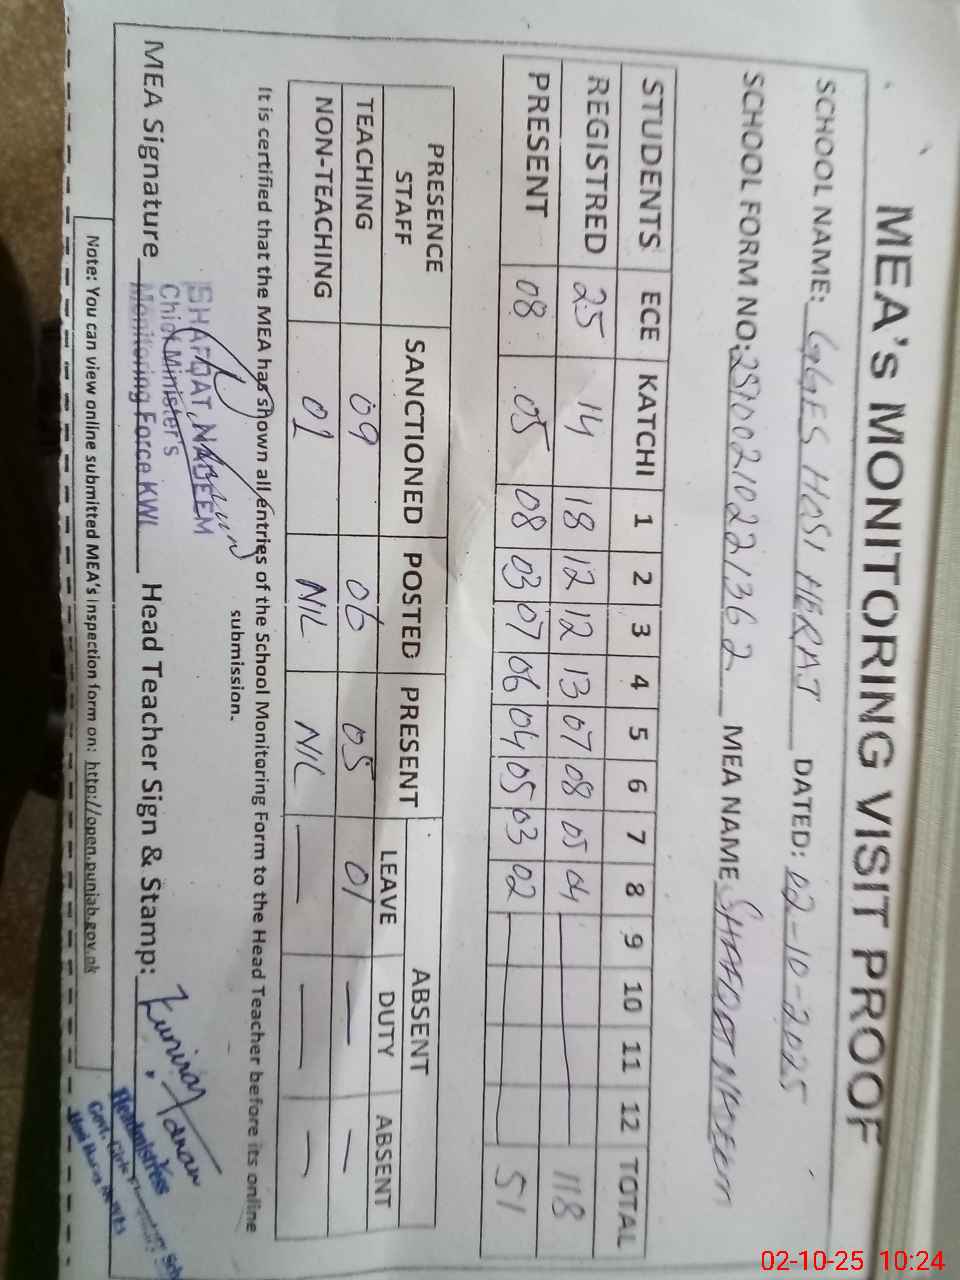 MEA'S MONITORING VISIT PROOF
SCHOOL NAME: GGES HASI HERAT DATED: 02-10-2025
SCHOOL FORM NO: MEA NAME SHAFQAT NADEEM
STUDENTS ECE KATCHI 1 2 3 4 5 6 7 8 9 10 11 12 TOTAL
REGISTRED 25 14 18 12 12 13 07 08 05 04 118
PRESENT 08 05 08 03 07 06 04 05 03 02 51
PRESENCE STAFF SANCTIONED POSTED PRESENT ABSENT
LEAVE DUTY ABSENT
TEACHING 09 06 05 01 — —
NON-TEACHING 01 NIL NIL — — —
It is certified that the MEA has shown all entries of the School Monitoring Form to the Head Teacher before its online
submission.
SHAFQAT NADEEM
Chief Minister's
Monitoring Force KWL
MEA Signature Head Teacher Sign & Stamp:
Headmistress
Govt. Girls
Note: You can view online submitted MEA's inspection form on: http://open.punjab.gov.pk
02-10-25 10:24